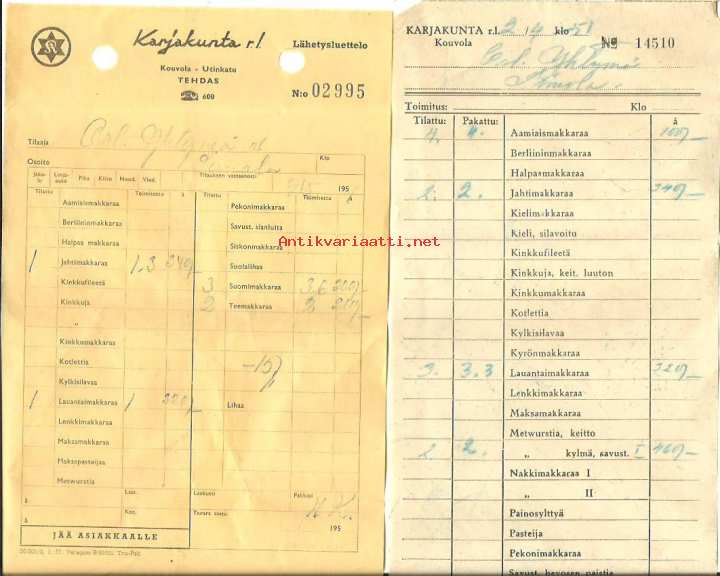 Karjakunta r.l.
Lähetysluettelo
Kouvola - Utinkatu
TEHDAS
☎ 600
N:o 02995
Tilaaja Osl. Yhtymä
Osoite Simola Klo
Tilauksen vastaanotti
195
Tilattu Toimitettu à Tilattu Toimitettu à
Aamiaismakkaraa Pekonimakkaraa
Berliininmakkaraa Savust. sianluita
Halpaa makkaraa Siskonmakkaraa
1 Jahtimakkaraa 1,3 340,- Suolalihaa
Kinkkufileetä 3 Suomimakkaraa 3,6 200,-
Kinkkuja 2 Teemakkaraa 2 210,-
„
Kinkkumakkaraa
Kotlettia -157
Kylkisilavaa
1 Lauantaimakkaraa 1 320,- Lihaa
Lenkkimakkaraa
Maksamakkaraa
Maksapasteijaa
Metwurstia
à Laat. Laskutti Pakkasi
à Koc. Tavara saatu 195
JÄÄ ASIAKKAALLE
Antikvariaatti.net
KARJAKUNTA r.l. 2/4 klo 51
Kouvola № 14510
Osl. Yhtymä
Simola
Toimitus: Klo
Tilattu: Pakattu: à
4. 4. Aamiaismakkaraa
Berliininmakkaraa
Halpasmakkaraa
2. 2. Jahtimakkaraa 340,-
Kielimakkaraa
Kieli, silavoitu
Kinkkufileetä
Kinkkuja, keit. luuton
Kinkkumakkaraa
Kotlettia
Kylkisilavaa
Kyrönmakkaraa
3. 3,3 Lauantaimakkaraa 320,-
Lenkkimakkaraa
Maksamakkaraa
Metwurstia, keitto
2. 2. „ kylmä, savust. I 460,-
Nakkimakkaraa I
„ II
Painosylttyä
Pasteija
Pekonimakkaraa
Savust. hevosen paistia